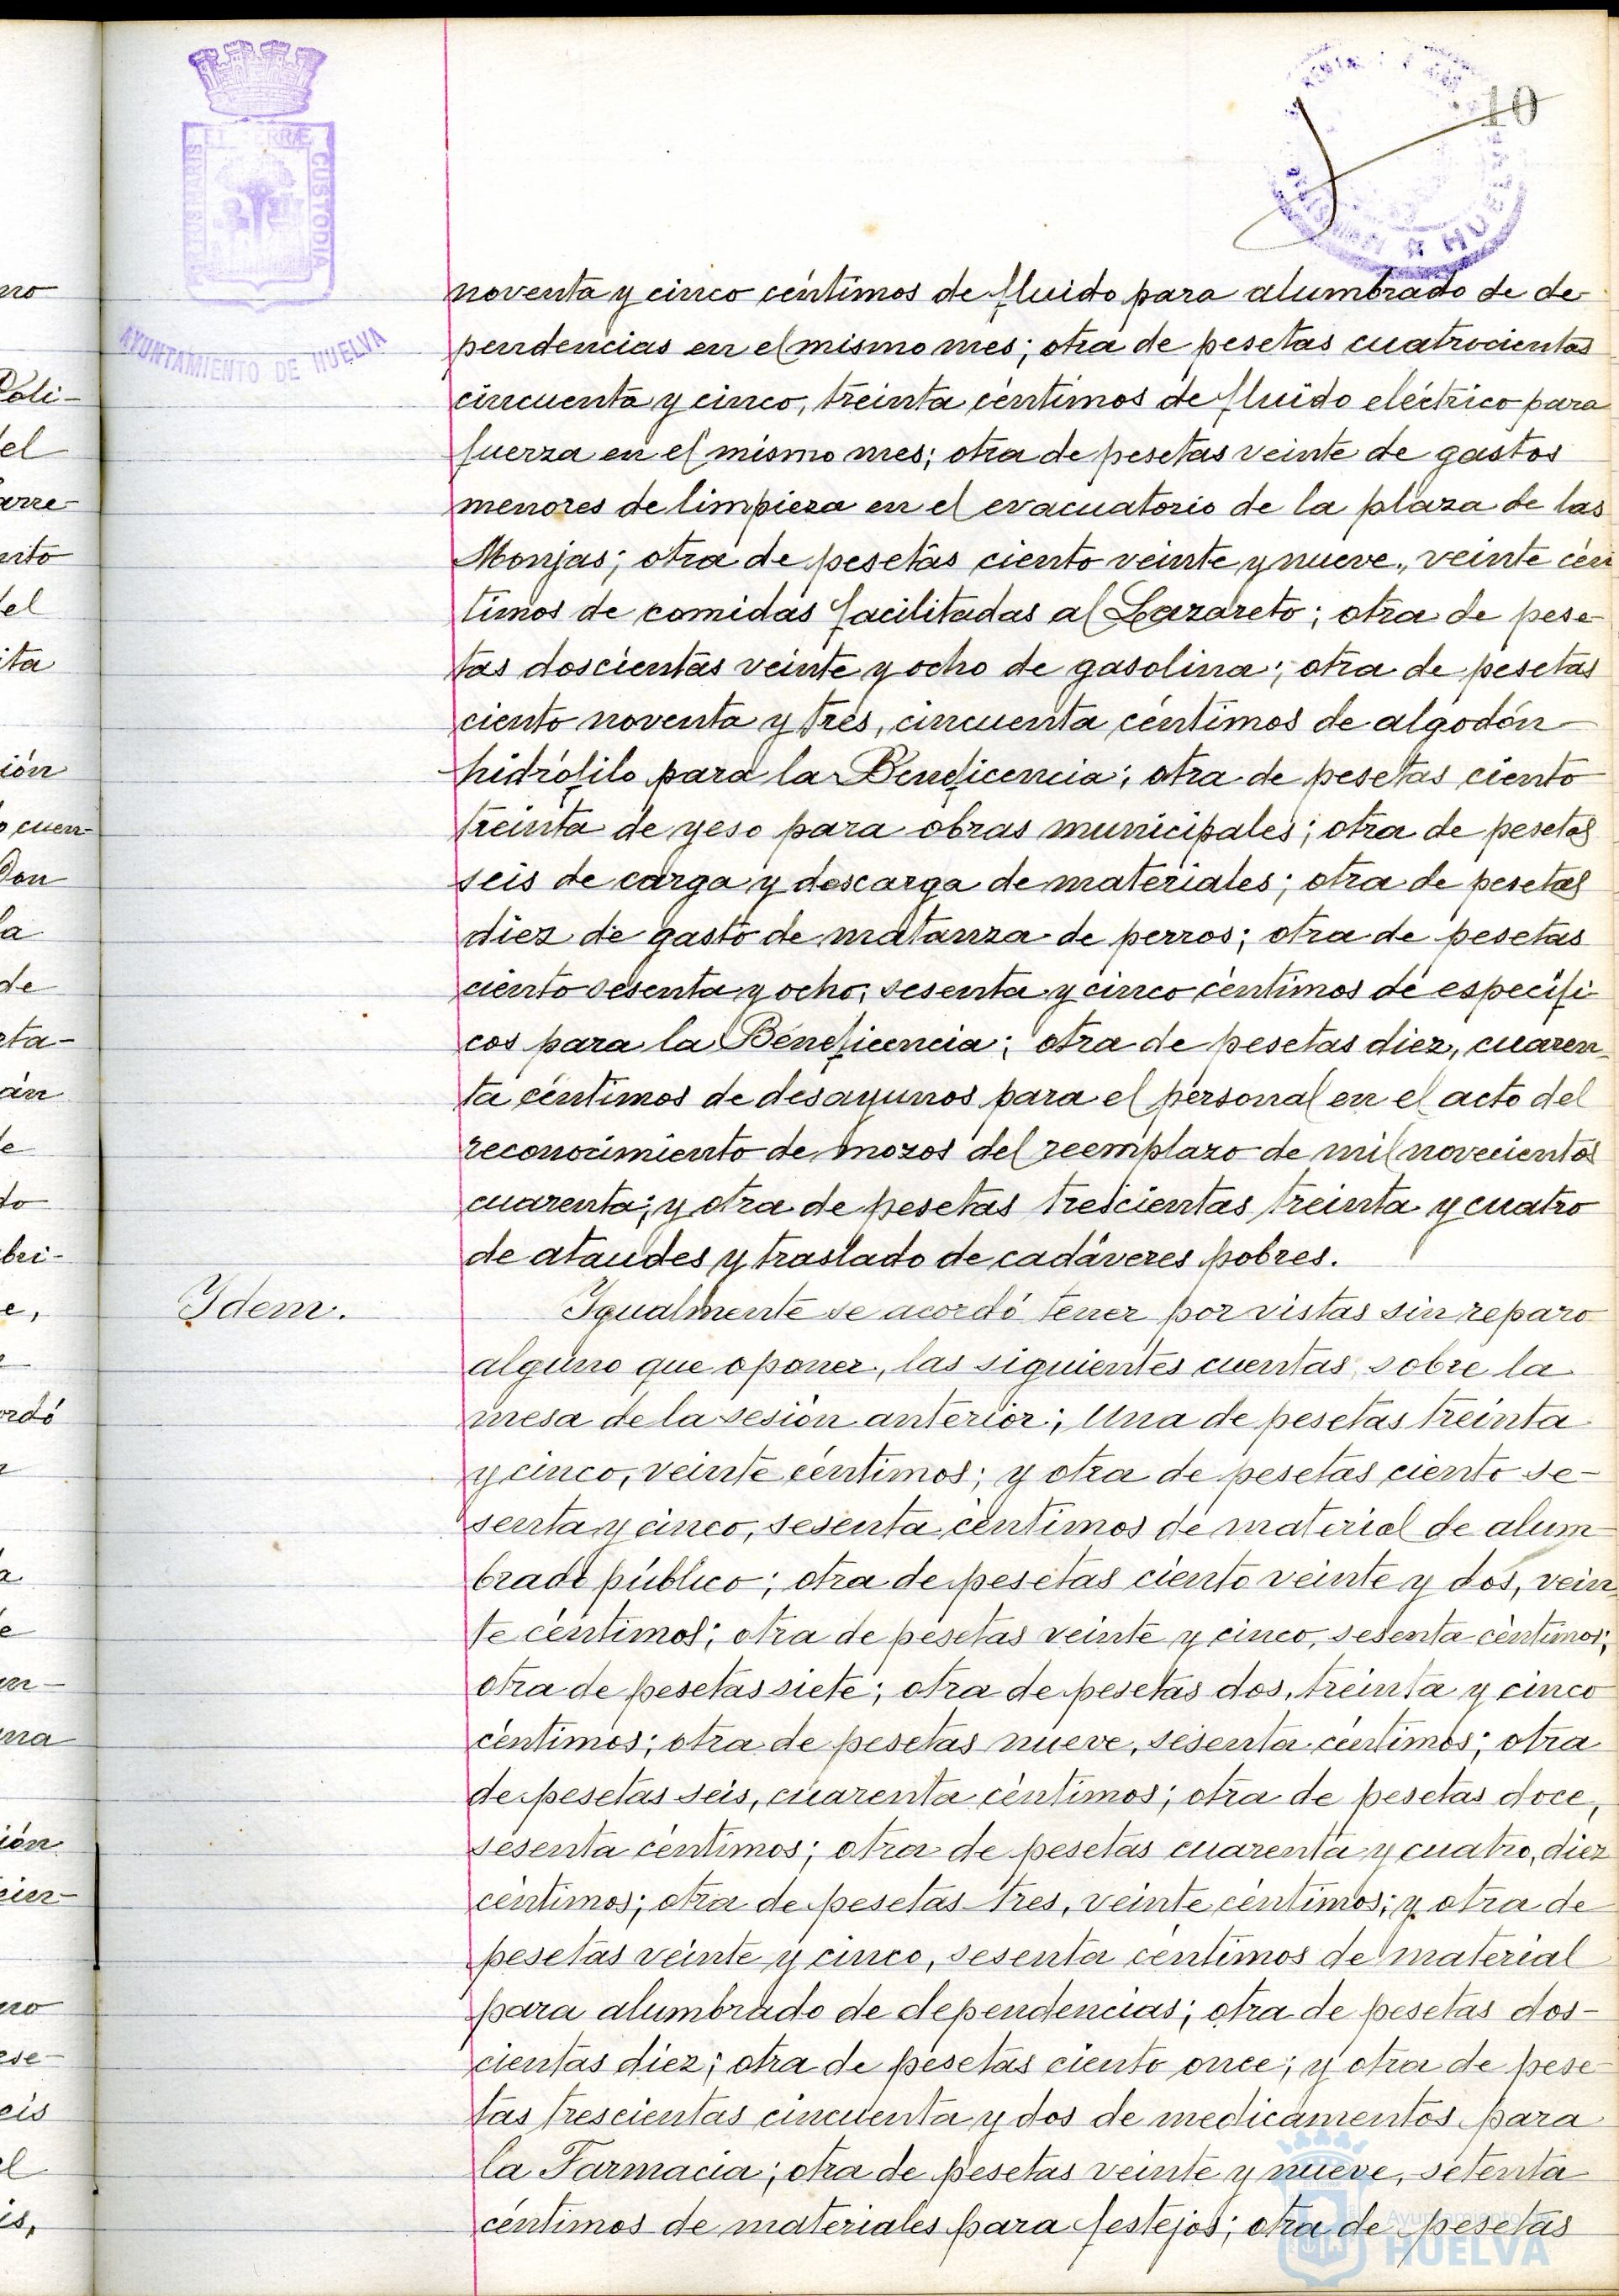 10
PORTUS MARIS ET TERRÆ CUSTODIA
AYUNTAMIENTO DE HUELVA
HUELVA
noventa y cinco céntimos de fluido para alumbrado de de-
pendencias en el mismo mes; otra de pesetas cuatrocientas
cincuenta y cinco, treinta céntimos de fluido eléctrico para
fuerza en el mismo mes; otra de pesetas veinte de gastos
menores de limpieza en el evacuatorio de la plaza de las
Monjas; otra de pesetas ciento veinte y nueve, veinte cén
timos de comidas facilitadas al Lazareto; otra de pese-
tas doscientas veinte y ocho de gasolina; otra de pesetas
ciento noventa y tres, cincuenta céntimos de algodón
hidrófilo para la Beneficencia; otra de pesetas ciento
treinta de yeso para obras municipales; otra de pesetas
seis de carga y descarga de materiales; otra de pesetas
diez de gasto de matanza de perros; otra de pesetas
ciento sesenta y ocho, sesenta y cinco céntimos de específi-
cos para la Beneficencia; otra de pesetas diez, cuaren-
ta céntimos de desayunos para el personal en el acto del
reconocimiento de mozos del reemplazo de mil novecientos
cuarenta; y otra de pesetas trescientas treinta y cuatro
de ataudes y traslado de cadáveres pobres.
Ydem.
Igualmente se acordó tener por vistas sin reparo
alguno que oponer, las siguientes cuentas sobre la
mesa de la sesión anterior; Una de pesetas treinta
y cinco, veinte céntimos; y otra de pesetas ciento se-
senta y cinco, sesenta céntimos de material de alum-
brado público; otra de pesetas ciento veinte y dos, vein-
te céntimos; otra de pesetas veinte y cinco, sesenta céntimos;
otra de pesetas siete; otra de pesetas dos, treinta y cinco
céntimos; otra de pesetas nueve, sesenta céntimos; otra
de pesetas seis, cuarenta céntimos; otra de pesetas doce,
sesenta céntimos; otra de pesetas cuarenta y cuatro, diez
céntimos; otra de pesetas tres, veinte céntimos; y otra de
pesetas veinte y cinco, sesenta céntimos de material
para alumbrado de dependencias; otra de pesetas dos-
cientas diez; otra de pesetas ciento once; y otra de pese-
tas trescientas cincuenta y dos de medicamentos para
la Farmacia; otra de pesetas veinte y nueve, setenta
céntimos de materiales para festejos; otra de pesetas
Ayuntamiento de
HUELVA